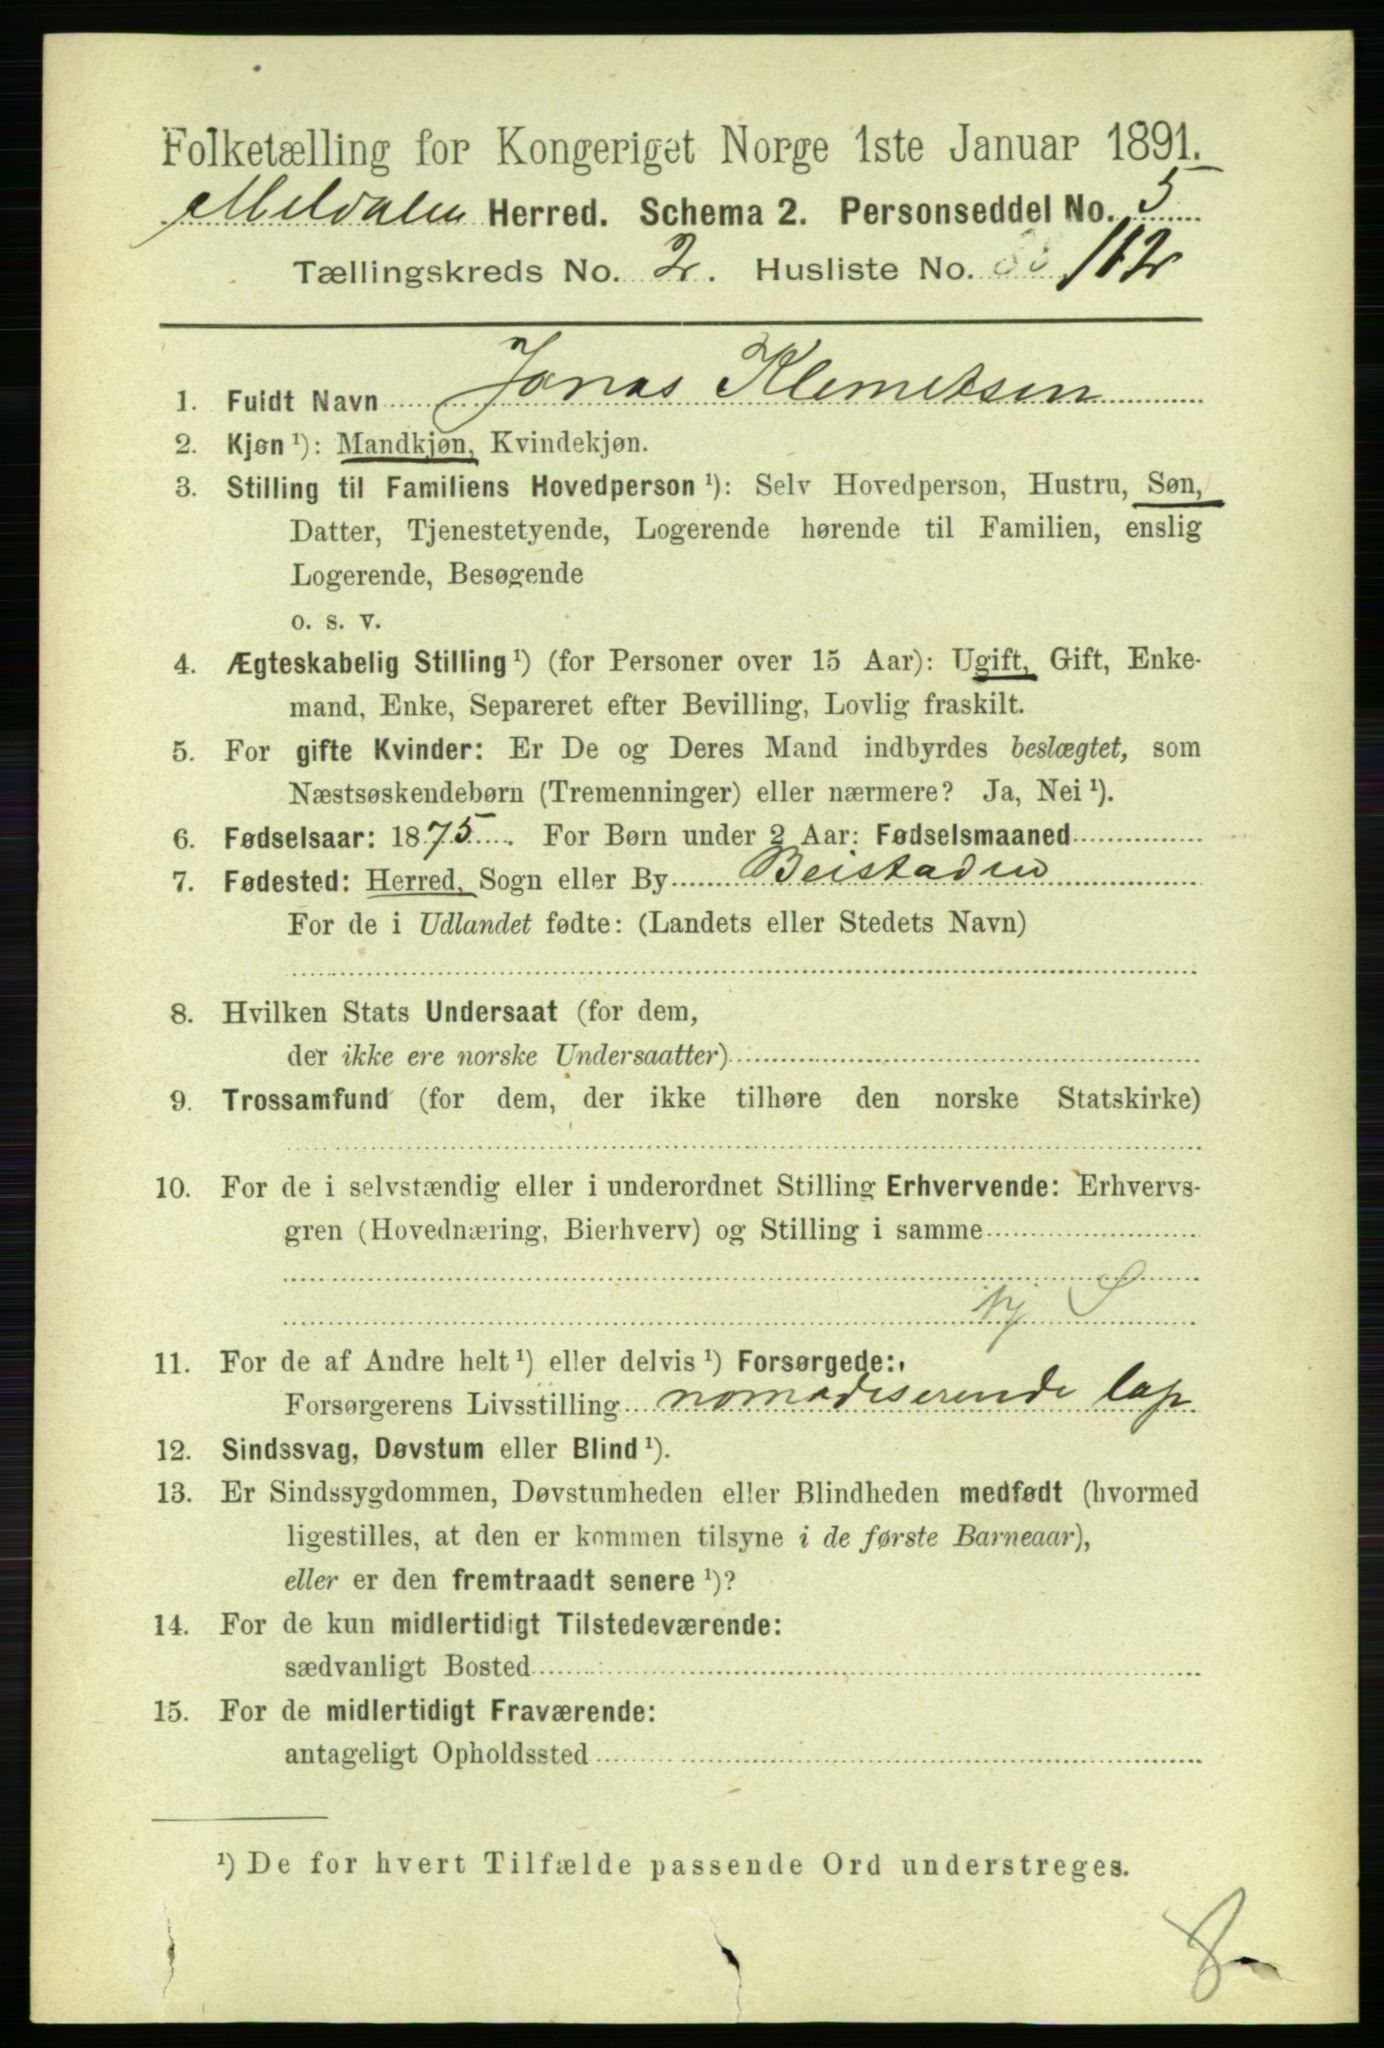 Folketælling for Kongeriget Norge 1ste Januar 1891.
Meldalen Herred. Schema 2. Personseddel No. 5
Tællingskreds No. 2. Husliste No. 112
1. Fuldt Navn Jonas Klemetsen
2. Kjøn ¹): Mandkjøn, Kvindekjøn.
3. Stilling til Familiens Hovedperson ¹): Selv Hovedperson, Hustru, Søn,
Datter, Tjenestetyende, Logerende hørende til Familien, enslig
Logerende, Besøgende
o. s. v.
4. Ægteskabelig Stilling ¹) (for Personer over 15 Aar): Ugift, Gift, Enke-
mand, Enke, Separeret efter Bevilling, Lovlig fraskilt.
5. For gifte Kvinder: Er De og Deres Mand indbyrdes beslægtet, som
Næstsøskendebørn (Tremenninger) eller nærmere? Ja, Nei ¹).
6. Fødselsaar: 1875. For Børn under 2 Aar: Fødselsmaaned
7. Fødested: Herred, Sogn eller By Beistaden
For de i Udlandet fødte: (Landets eller Stedets Navn)
8. Hvilken Stats Undersaat (for dem,
der ikke ere norske Undersaatter)
9. Trossamfund (for dem, der ikke tilhøre den norske Statskirke)
10. For de i selvstændig eller i underordnet Stilling Erhvervende: Erhvervs-
gren (Hovednæring, Bierhverv) og Stilling i samme
11. For de af Andre helt ¹) eller delvis ¹) Forsørgede:
Forsørgerens Livsstilling nomadiserende lap
12. Sindssvag, Døvstum eller Blind ¹).
13. Er Sindssygdommen, Døvstumheden eller Blindheden medfødt (hvormed
ligestilles, at den er kommen tilsyne i de første Barneaar),
eller er den fremtraadt senere ¹)?
14. For de kun midlertidigt Tilstedeværende:
sædvanligt Bosted
15. For de midlertidigt Fraværende:
antageligt Opholdssted
¹) De for hvert Tilfælde passende Ord understreges.
8